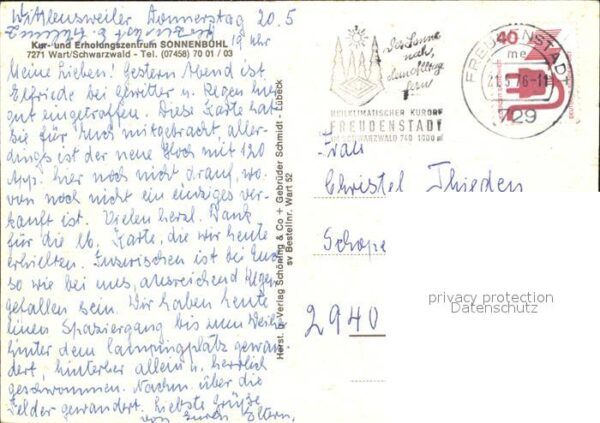 Wittlensweiler Donnerstag 20.5
19 Uhr
Kur- und Erholungszentrum SONNENBÜHL
7271 Wart/Schwarzwald - Tel. (07458) 70 01 / 03
Meine Lieben! Gestern Abend ist
Elfriede bei Gewitter u. Regen hier
gut eingetroffen. Diese Karte hat
Sie für Euch mitgebracht, aller-
dings ist der neue Block mit 120
App. hier noch nicht drauf, wo-
von noch nicht ein einziges ver-
kauft ist. Vielen herzl. Dank
für die lb. Karte, die wir heute
erhielten. Inzwischen ist bei Euch
so wie bei uns, ausreichend Regen
gefallen sein. Wir haben heute
einen Spaziergang bis zum Weiher
hinter dem Campingplatz gewan-
dert, hinterher allein u. herrlich
geschwommen. Nachm. über die
Felder gewandert. Liebste Grüße
von Euren Eltern,
Herst. u. Verlag Schöning & Co + Gebrüder Schmidt - Lübeck
sv Bestellnr. Wart 52
Der Sonne
nah,
dem Alltag
fern
HEILKLIMATISCHER KURORT
FREUDENSTADT
IM SCHWARZWALD 740-1000 m
FREUDENSTADT
me
21.5.76-11
729
40
Frau
Christel Thieden
Schope
2940
privacy protection
Datenschutz